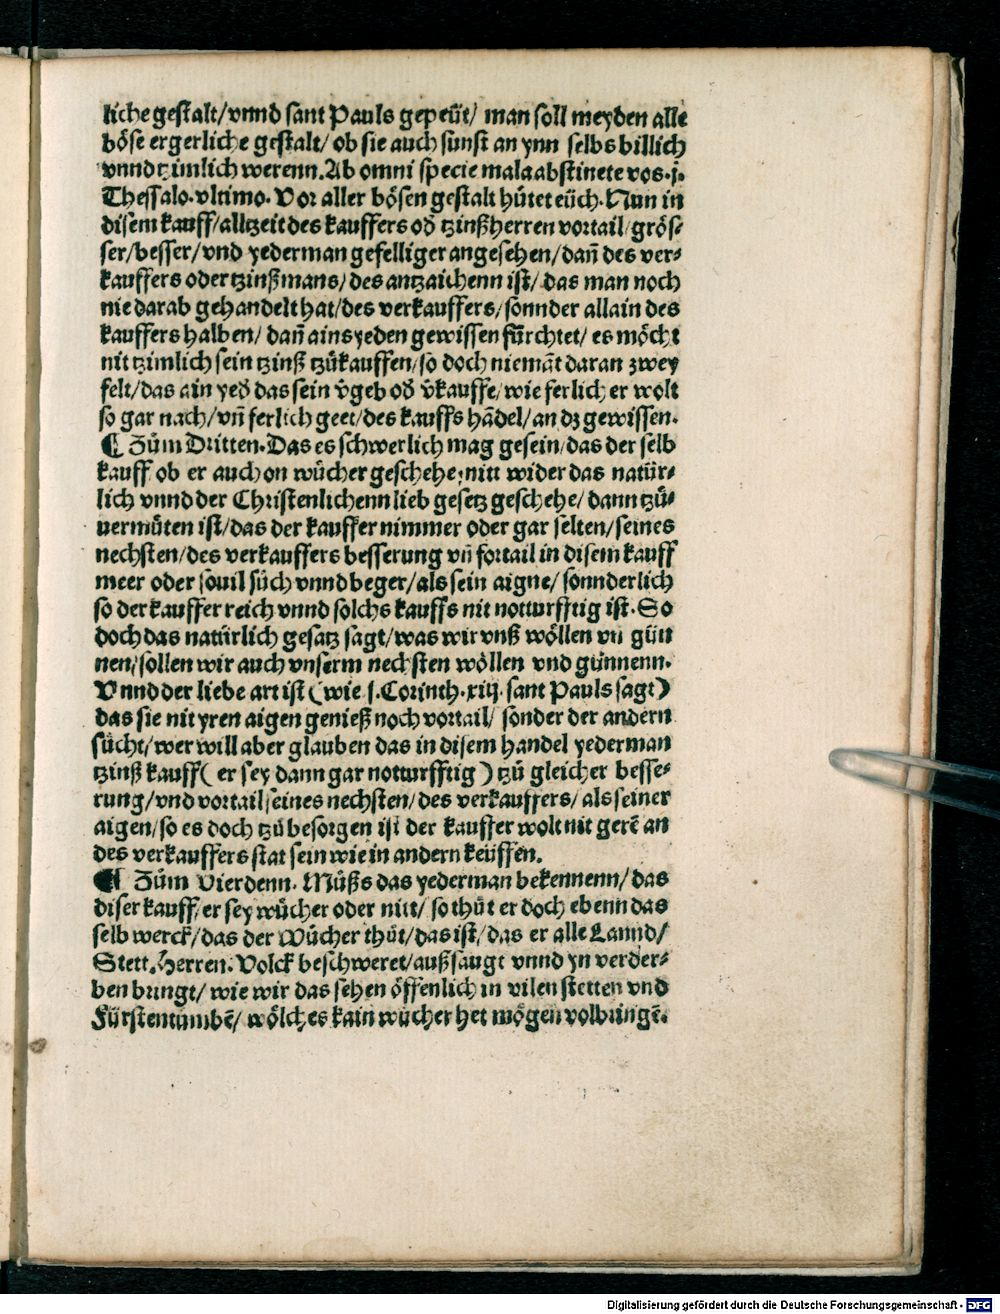 liche gestalt/vnnd sant Pauls gepeüt/ man soll meyden alle
böse ergerliche gestalt/ ob sie auch sunst an ynn selbs billich
vnnd tzimlich werenn. Ab omni specie mala abstinete vos. j.
Thessalo. vltimo. Vor aller bösen gestalt hütet eüch. Nun in
disem kauff/alltzeit des kauffers od̃ tzinßherren vortail/ grös⸗
ser/besser/vnd yederman gefelliger angesehen/ dañ des ver⸗
kauffers oder tzinßmans/ des antzaichenn ist/ das man noch
nie darab gehandelt hat/des verkauffers/ sonnder allain des
kauffers halben/ dañ ains yeden gewissen fürchtet/ es möcht
nit tzimlich sein tzinß tzükauffen/so doch niemãt daran zwey
felt/das ain yed̃ das sein ṽgeb od̃ ṽkauffe/wie ferlich er wolt
so gar nach/vñ ferlich geet/des kauffs hãdel/an dz gewissen.
¶ Züm Dritten. Das es schwerlich mag gesein/das der selb
kauff ob er auch on wücher geschehe/nitt wider das natür⸗
lich vnnd der Christenlichenn lieb gesetz geschehe/ dann tzü⸗
uermüten ist/das der kauffer nimmer oder gar selten/seines
nechsten/des verkauffers besserung vñ fortail in disem kauff
meer oder souil süch vnnd beger/als sein aigne/ sonnderlich
so der kauffer reich vnnd solchs kauffs nit notturfftig ist. So
doch das natürlich gesatz sagt/was wir vnß wöllen vñ günn
nen/sollen wir auch vnserm nechsten wöllen vnd günnenn.
Vnnd der liebe art ist (wie j. Corinth. xiij. sant Pauls sagt)
das sie nit yren aigen genieß noch vortail/ sonder der andern
sücht/wer will aber glauben das in disem handel yederman
tzinß kauff( er sey dann gar notturfftig ) tzü gleicher besse⸗
rung/vnd vortail seines nechsten/des verkauffers/ als seiner
aigen/so es doch tzü besorgen ist der kauffer wolt nit gerẽ an
des verkauffers stat sein wie in andern keüffen.
¶ Züm Vierdenn. Müßs das yederman bekennenn/das
diser kauff/er sey wücher oder nitt/ so thüt er doch ebenn das
selb werck/das der Wücher thüt/das ist/das er alle Lannd/
Stett. Herren. Volck beschweret/außsaugt vnnd yn verder⸗
ben bringt/ wie wir das sehen öffenlich in vilen stetten vnd
Fürstentumbẽ/ wölches kain wücher het mögen volbringẽ.
Digitalisierung gefördert durch die Deutsche Forschungsgemeinschaft - DFG